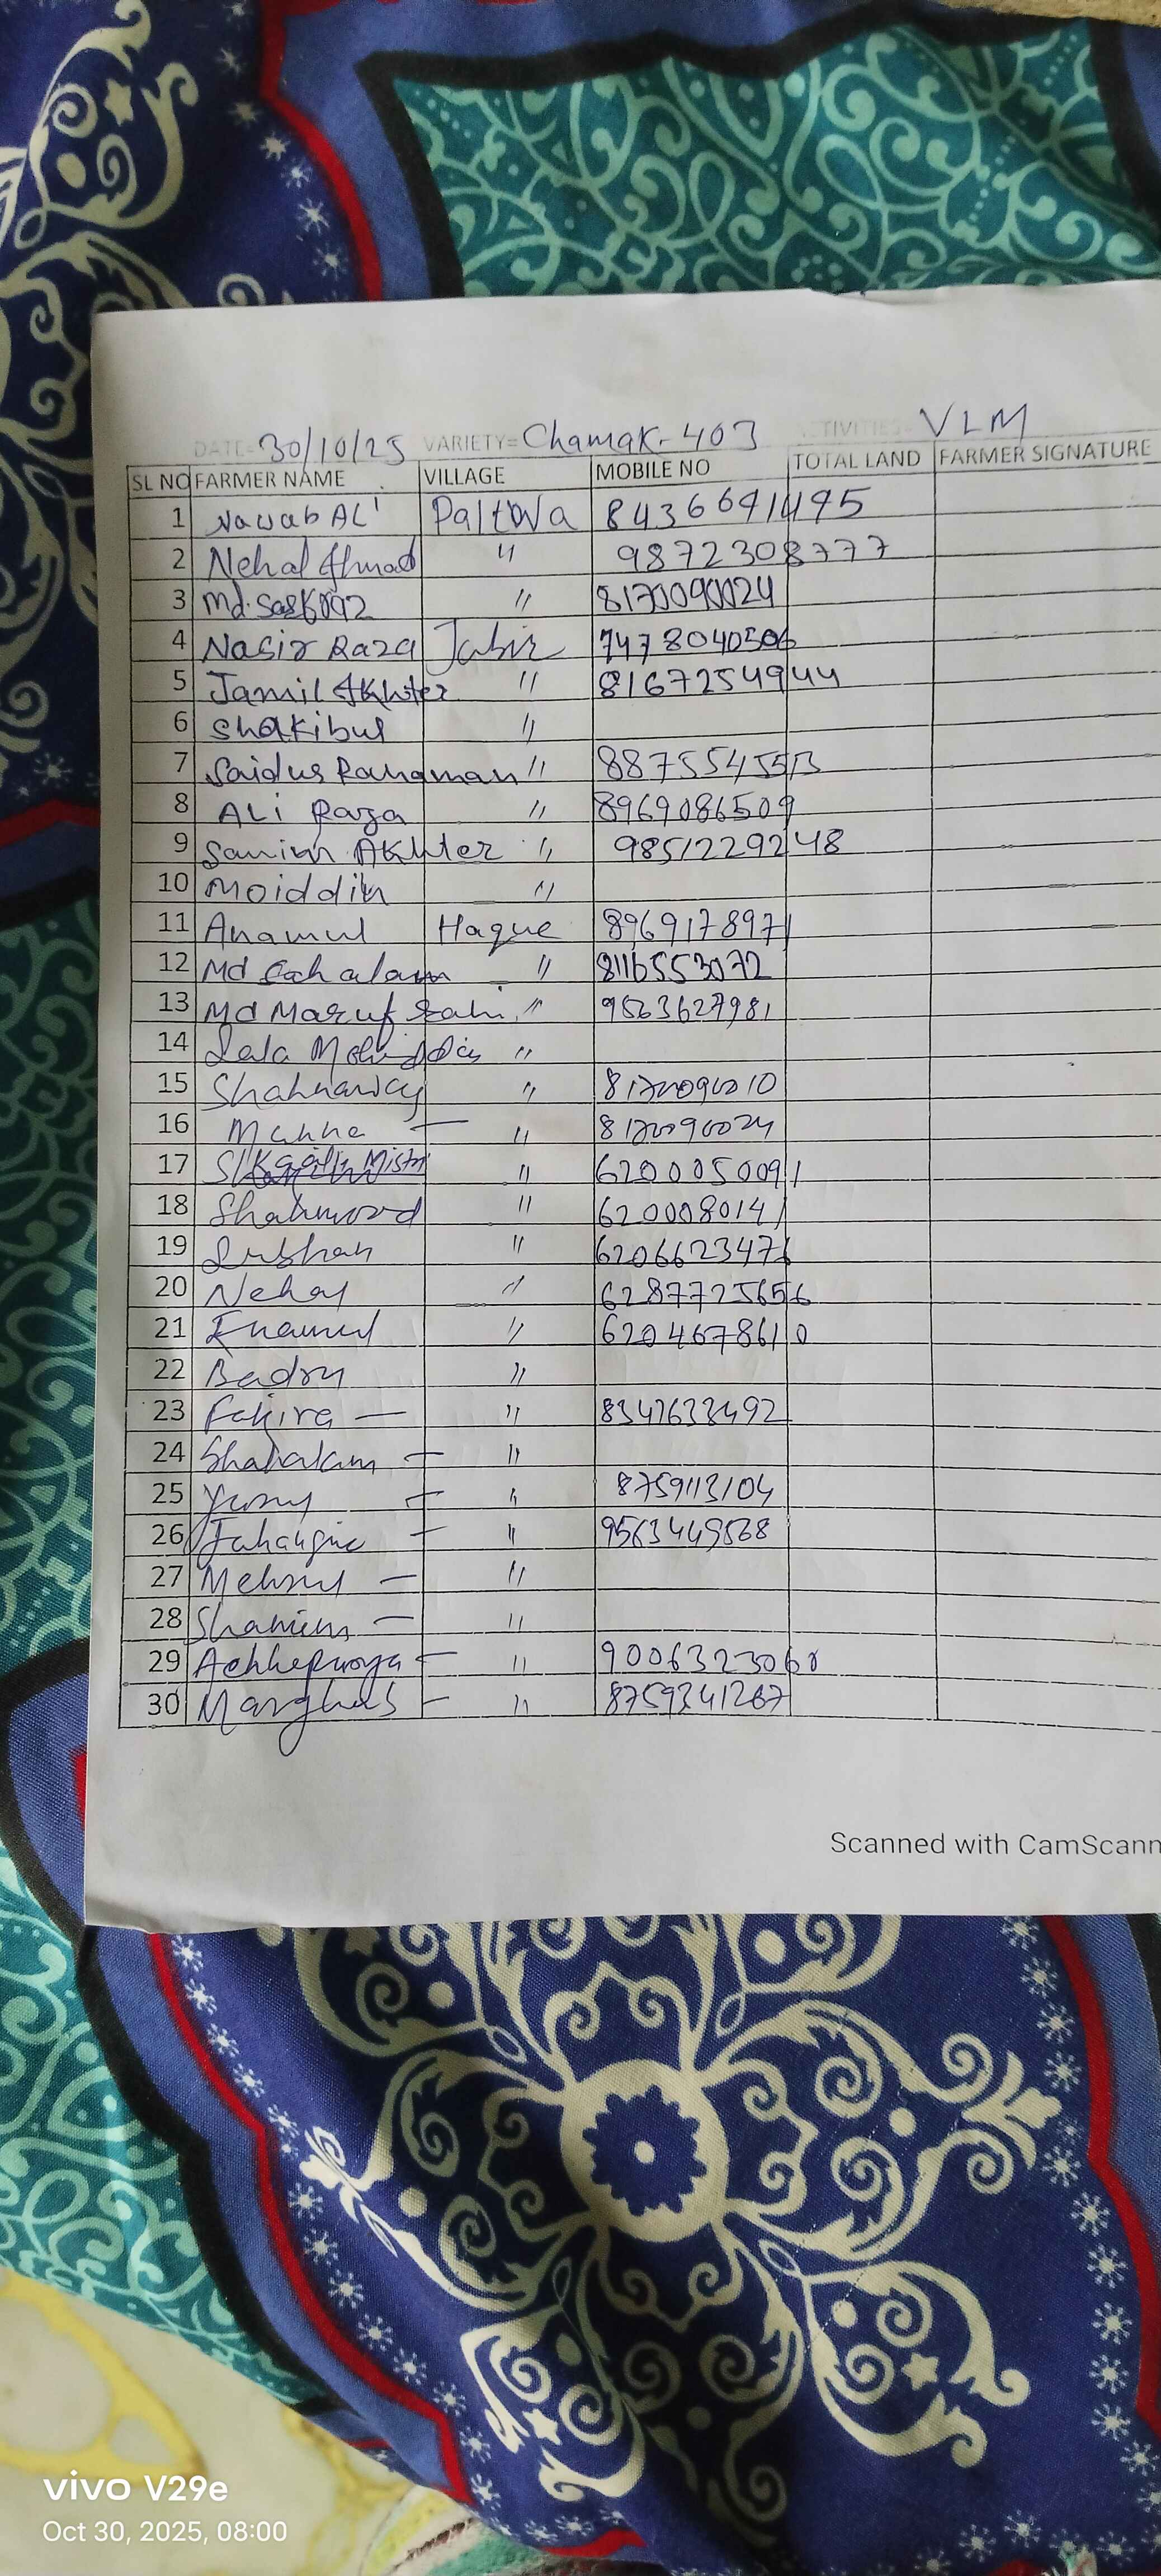 DATE= 30/10/25 VARIETY= Chamak-403 ACTIVITIES= VLM
SL NO FARMER NAME VILLAGE MOBILE NO TOTAL LAND FARMER SIGNATURE
1 Nawab ALi Paltova 8436641495
2 Nehal Ahmad " 9872308777
3 Md. " 8170090024
4 Nasir Raza Jabir 7478040506
5 Jamil Akhter " 8167254944
6 Shakibul "
7 Saidus Rahaman " 8875545513
8 ALi Raza " 8969086509
9 Samim Akhter " 9851229248
10 Moiddin "
11 Anamul Haque 8969178971
12 Md " 8116553072
13 Md Maruf " 9563627981
14 "
15 Shahnawaj " 8170090010
16 Manna — " 8170090024
17 Mistri " 6200050091
18 Shahmood " 620008014/
19 "
20 Nehal " 6287725656
21 Enamul " 6204678610
22 Badru "
23 Fakira — " 8347633492
24 Shahalam — "
25 — " 8759113104
26 Jahangir — " 9563449568
27 — "
28 Shamim — "
29 — "
30 Marghub — " 8759341267
Scanned with CamScann
vivo V29e
Oct 30, 2025, 08:00